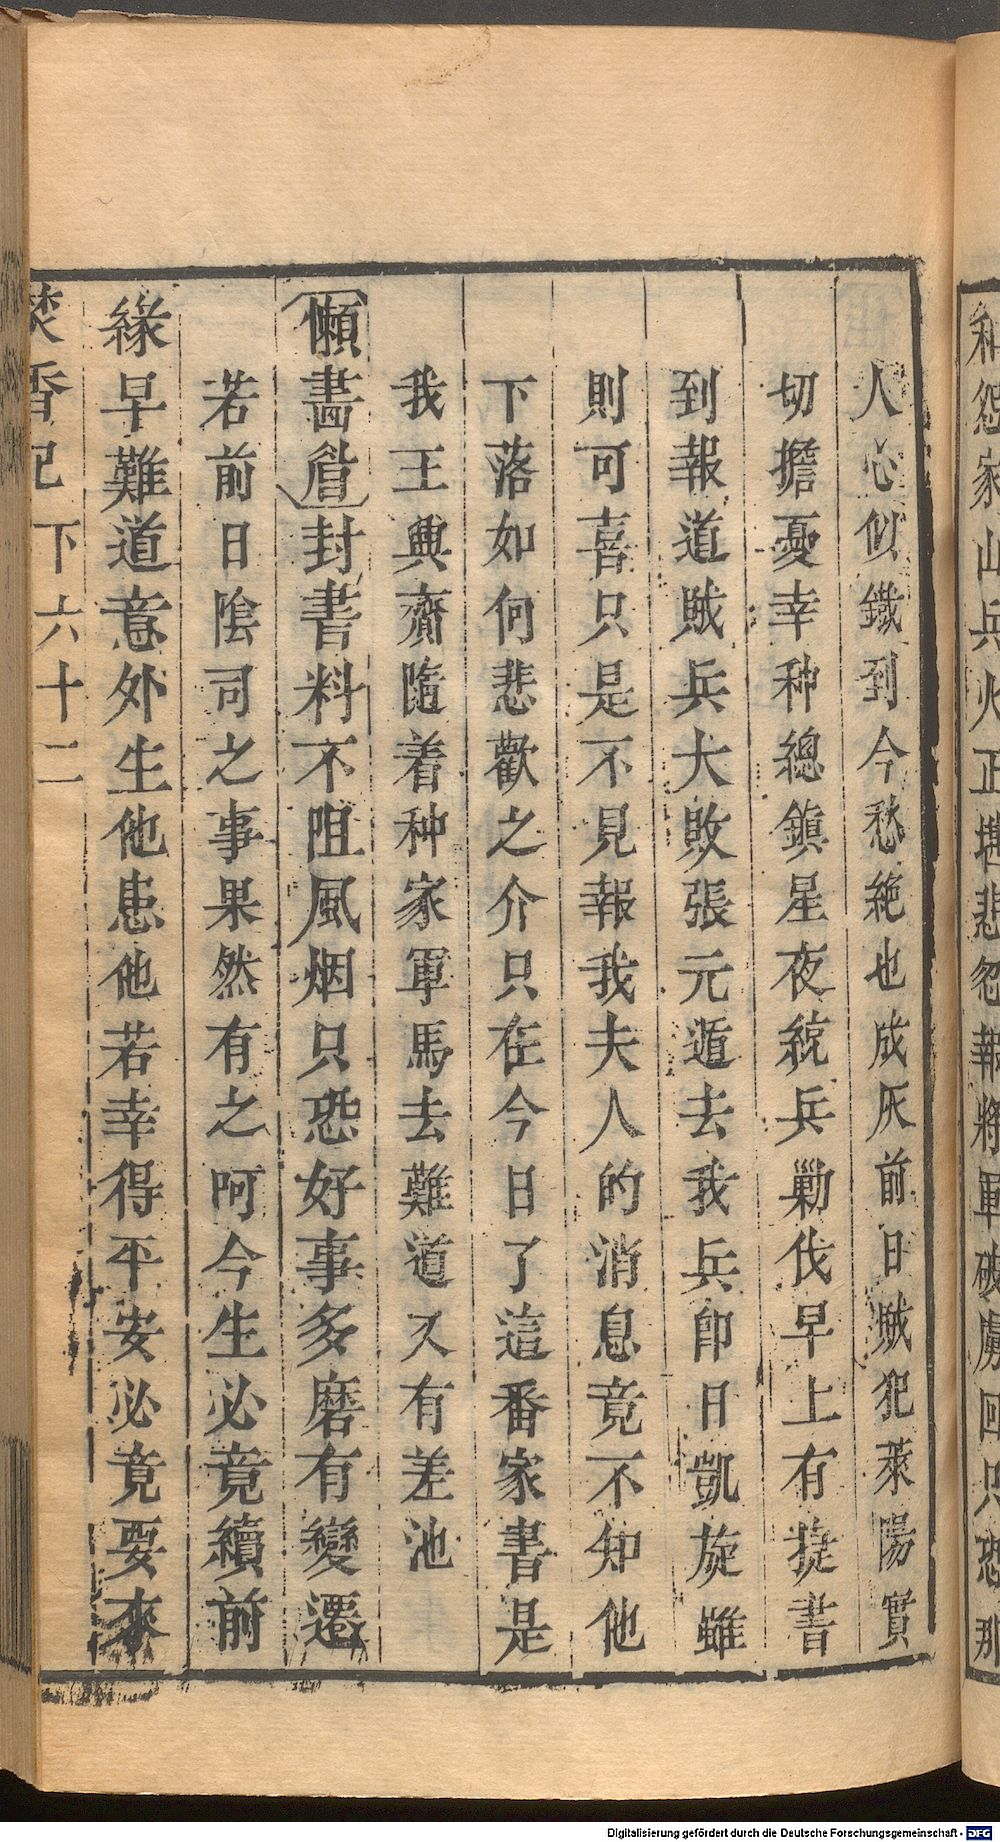 和怨家山兵火正堪悲忽報將軍破虜回只恐那
人心似鐵到今愁絶也成灰前日賊犯萊陽實
切擔憂幸种總鎮星夜統兵勦伐早上有㨗書
到報道賊兵大敗張元遁去我兵即日凱旋雖
則可喜只是不見報我夫人的消息竟不知他
下落如何悲歡之介只在今日了這番家書是
我王興齋隨着种家軍馬去難道又有差池
懶畵眉封書料不阻風烟只恐好事多磨有變遷
若前日陰司之事果然有之呵今生必竟續前
緣早難道意外生他患他若幸得平安必竟要來
焚香記 下 六十二
Digitalisierung gefördert durch die Deutsche Forschungsgemeinschaft - DFG